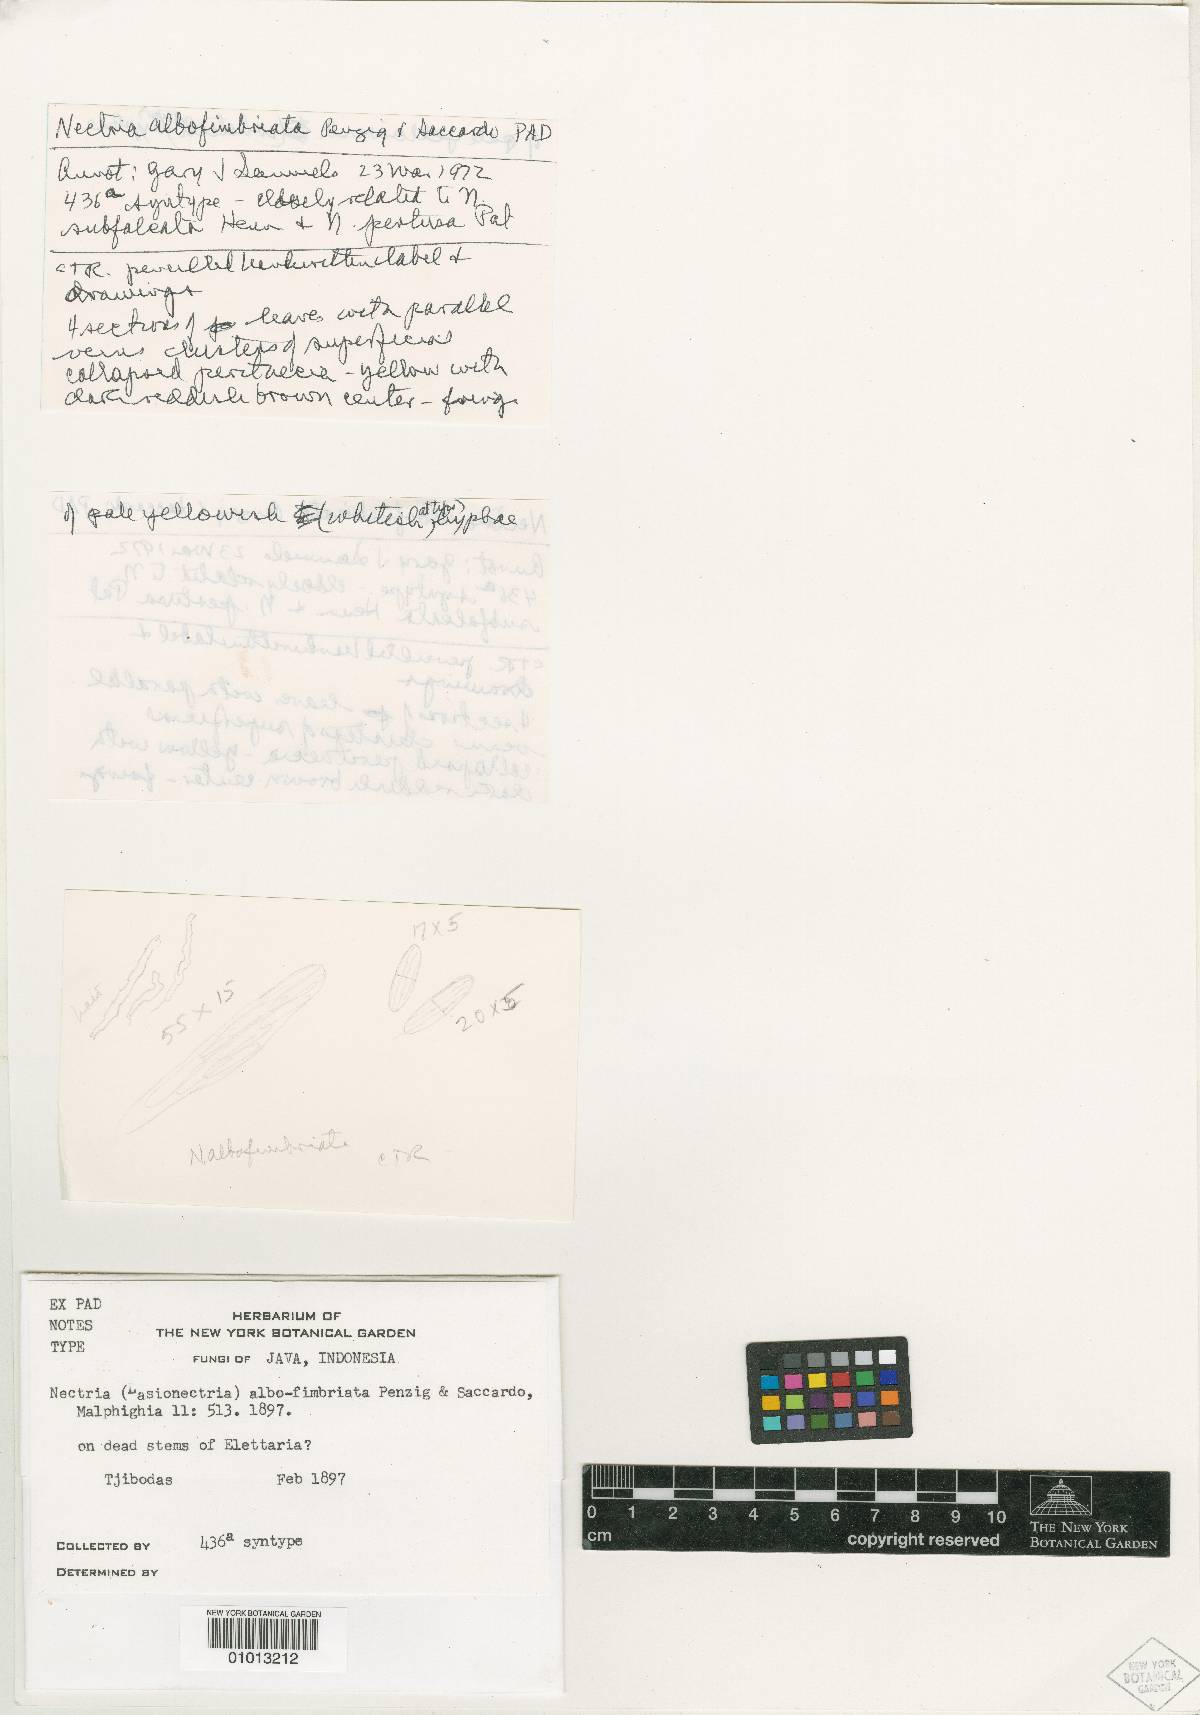 Nectria albofimbriata Penzig & Saccardo PAD
Annot: Gary J Samuels 23 Mar 1972
436a syntype - closely related to N.
subfalcata Henn & N. pertusa Pat
CTR. pencilled handwritten label &
drawings
4 sections of leaves with parallel
veins clusters of superficial
collapsed perithecia - yellow with
dark reddish brown center - fring
of pale yellowish (whitish hyphae
17 x 5
hair
55 x 15
20 x 5
N albofimbriata CTR
EX PAD
NOTES
TYPE
HERBARIUM OF
THE NEW YORK BOTANICAL GARDEN
FUNGI OF JAVA, INDONESIA
Nectria (Lasionectria) albo-fimbriata Penzig & Saccardo,
Malphighia 11: 513. 1897.
on dead stems of Elettaria?
Tjibodas Feb 1897
COLLECTED BY 436a syntype
DETERMINED BY
NEW YORK BOTANICAL GARDEN
01013212
0 1 2 3 4 5 6 7 8 9 10
cm copyright reserved
THE NEW YORK
BOTANICAL GARDEN
NEW YORK
BOTANICAL
GARDEN